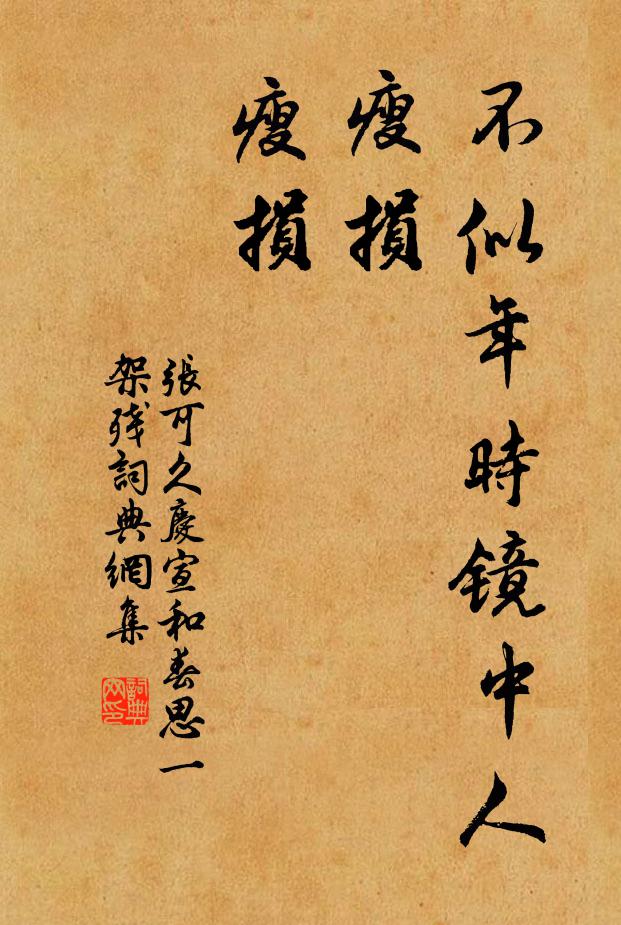 不似年時镜中人
瘦損
瘦損
張可久慶宣和春思一
架残詞典網集
詞典
网印